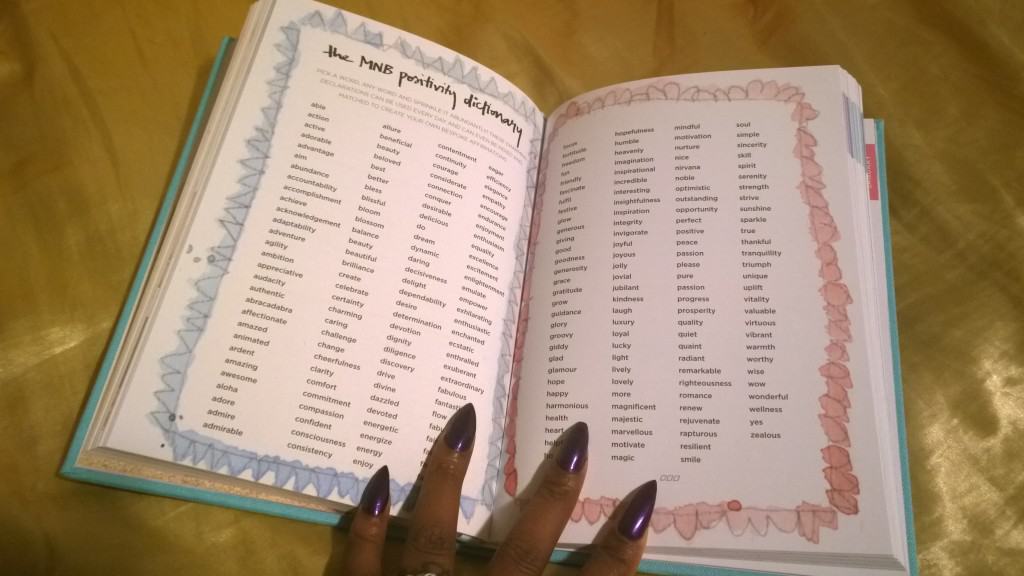 the MNB positivity dictionary
PICK A WORD, ANY WORD AND SPRINKLE IT ABUNDANTLY! THESE
DECLARATIONS CAN BE USED EVERY DAY AND CAN EVEN BE MIXED AND
MATCHED TO CREATE YOUR OWN BESPOKE AFFIRMATIONS
able
action
active
adorable
advantage
aim
abundance
accountability
accomplishment
achieve
acknowledgement
adaptability
adventure
agility
ambition
appreciative
audacity
authentic
abracadabra
affectionate
amazed
animated
ardent
amazing
awesome
aloha
adore
admire
admirable
allure
beneficial
beauty
beloved
best
better
bless
blissful
bloom
blossom
balance
beauty
beautiful
brilliance
create
celebrate
certainty
charming
caring
challenge
change
cheerfulness
clarity
comfort
commitment
compassion
confident
consciousness
consistency
contentment
continuity
courage
considerate
connection
conquer
desirable
delicious
do
dream
dynamic
daring
decisiveness
delight
dependability
desire
determination
devotion
dignity
diligence
discovery
drive
divine
dazzled
devoted
energetic
energize
energy
enjoy
eager
efficiency
elegance
empathy
encourage
endurance
enjoyment
enthusiasm
equality
excellence
excitement
enlightenment
emulate
empower
exhilarating
enthusiastic
enchanted
ecstatic
enthralled
exuberant
extraordinary
fabulous
flow
focus
fortitude
freedom
fun
friendly
fascinate
fulfil
festive
glow
generous
giving
good
goodness
generosity
grace
gratitude
grow
guidance
glory
groovy
giddy
glad
glamour
hope
happy
harmonious
health
hopefulness
humble
heavenly
imagination
inspirational
incredible
interesting
insightfulness
inspiration
integrity
invigorate
joyful
joyous
jolly
jovial
jubilant
kindness
laugh
luxury
loyal
lucky
light
lively
lovely
more
magnificent
majestic
marvellous
motivate
magic
mindful
motivation
nurture
nice
nirvana
noble
optimistic
outstanding
opportunity
perfect
positive
peace
passion
please
pure
passion
progress
prosperity
quality
quiet
quaint
radiant
remarkable
righteousness
romance
renew
rejuvenate
rapturous
resilient
smile
soul
simple
sincerity
skill
spirit
serenity
strength
strive
sunshine
sparkle
true
thankful
tranquillity
triumph
unique
uplift
vitality
valuable
virtuous
vibrant
warmth
worthy
wise
wow
wonderful
wellness
yes
zealous